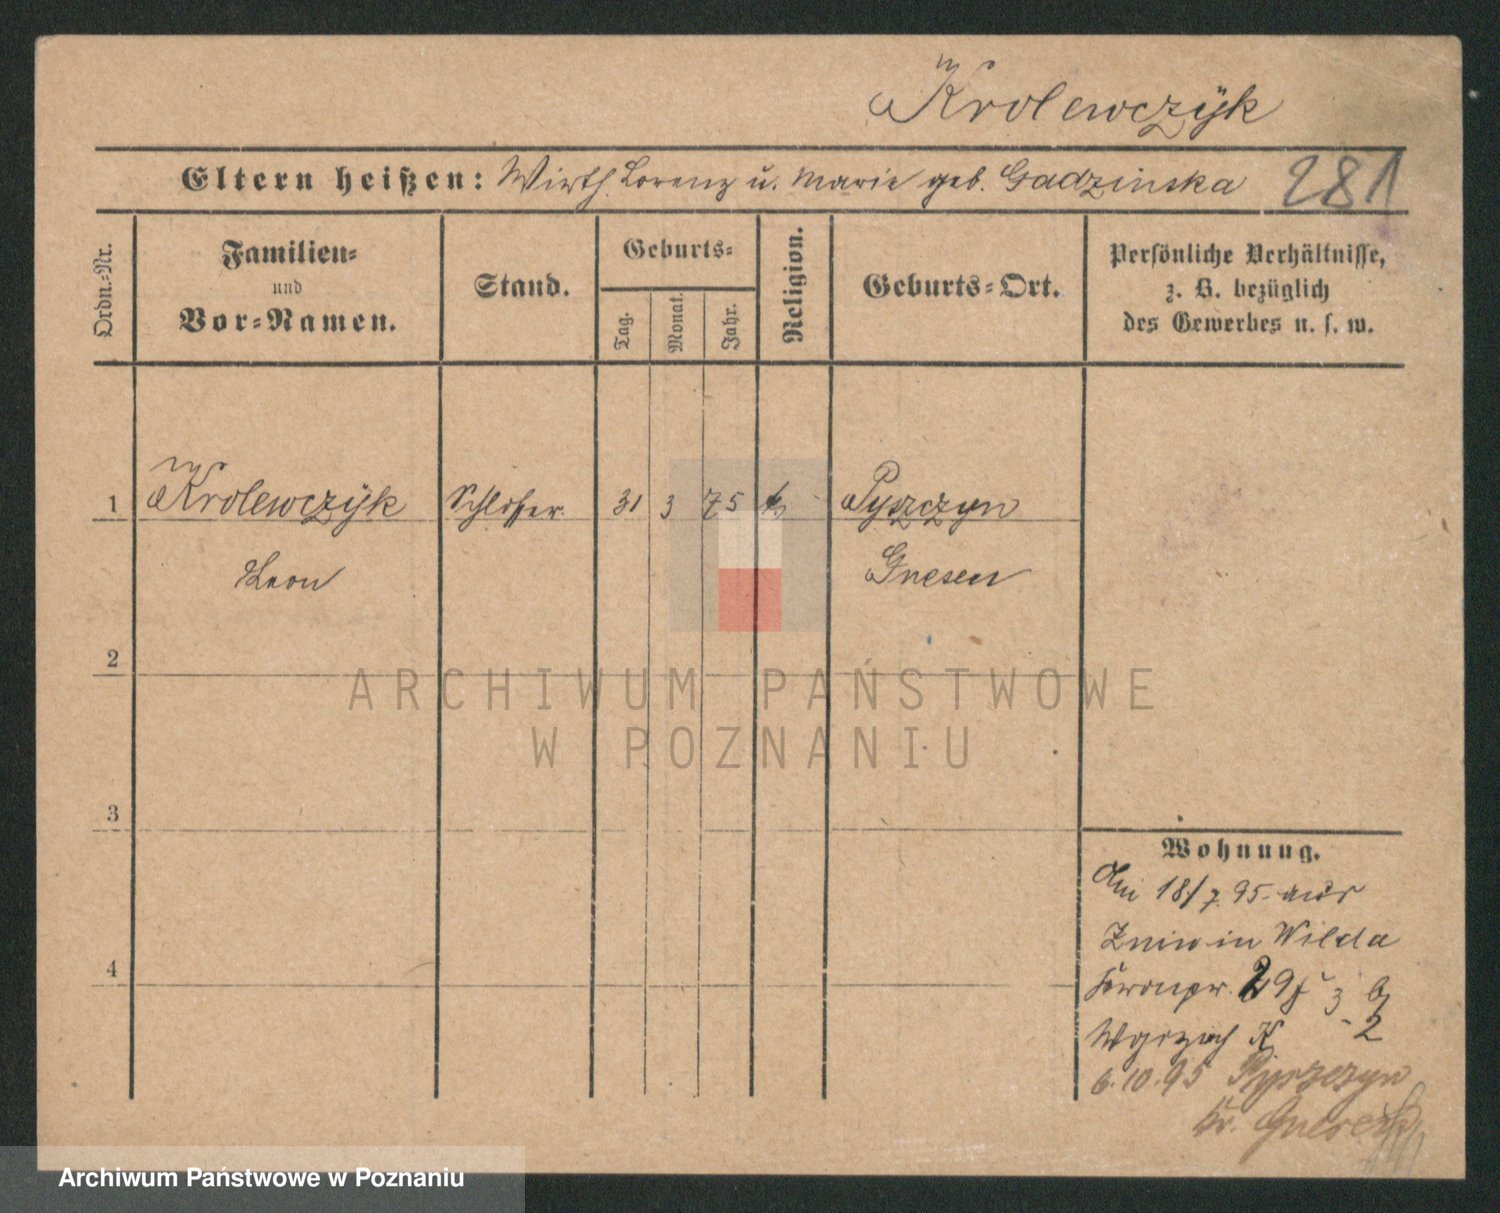 Krolewczÿk
Eltern heißen: Wirth Lorenz u. Marie geb. Gadzinska 281
Ordn.-Nr.
Familien-
und
Vor-Namen.
Stand.
Geburts-
Tag.
Monat.
Jahr.
Religion.
Geburts-Ort.
Persönliche Verhältnisse,
z. B. bezüglich
des Gewerbes u. s. w.
1 Krolewczÿk Schlosser 31 3 75 k Pyszczyn
Leon Gnesen
2
3
4
Wohnung.
Am 18/7. 95. aus
Znin in Wilda
Kronpr. 29
6.10.95 Pyszczyn
Kr. Gnesen
ARCHIWUM PAŃSTWOWE
W POZNANIU
Archiwum Państwowe w Poznaniu